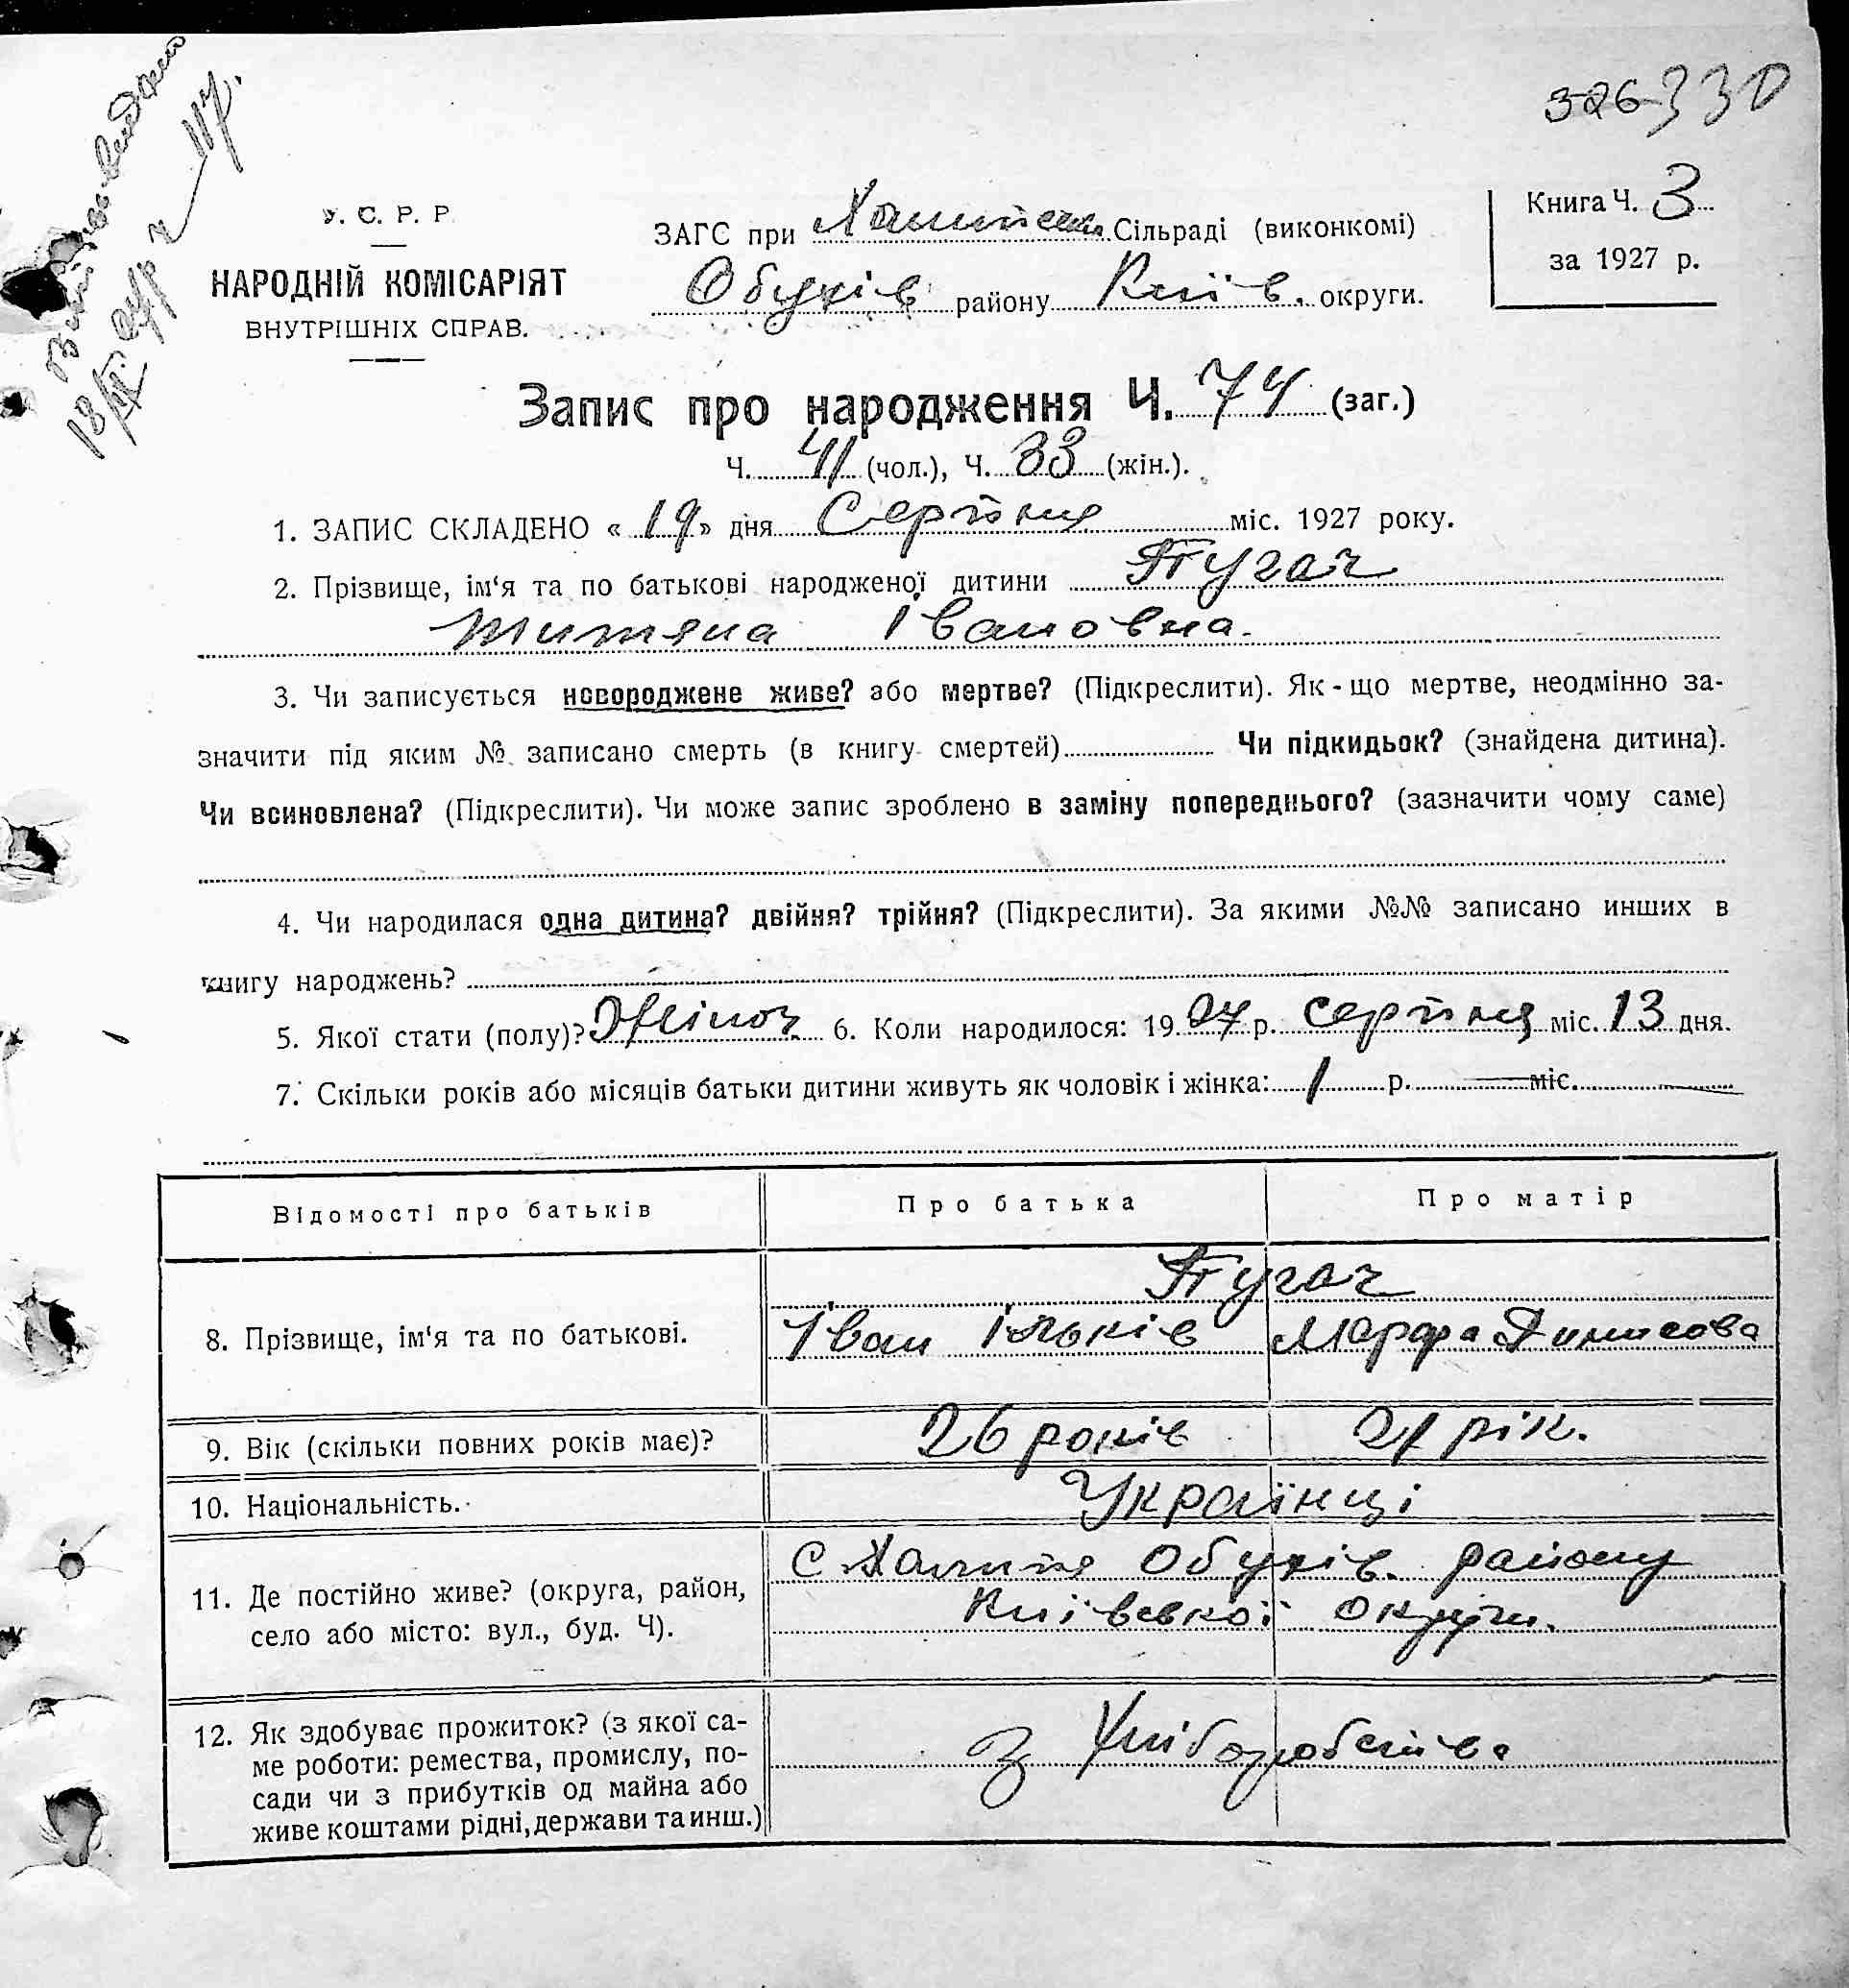 326 330
У. С. Р. Р.
НАРОДНІЙ КОМІСАРІЯТ
ВНУТРІШНІХ СПРАВ.
ЗАГС при Халипській Сільраді (виконкомі)
Обухів району Київ. округи.
Книга Ч. 3
за 1927 р.
Запис про народження Ч. 74 (заг.)
Ч. 41 (чол.), Ч. 33 (жін.).
1. ЗАПИС СКЛАДЕНО « 19 » дня Серпня міс. 1927 року.
2. Прізвище, ім‘я та по батькові народженої дитини Пугач
Титяна Івановна.
3. Чи записується новороджене живе? або мертве? (Підкреслити). Як-що мертве, неодмінно за-
значити під яким № записано смерть (в книгу смертей) Чи підкидьок? (знайдена дитина).
Чи всиновлена? (Підкреслити). Чи може запис зроблено в заміну попереднього? (зазначити чому саме)
4. Чи народилася одна дитина? двійня? трійня? (Підкреслити). За якими №№ записано инших в
книгу народжень?
5. Якої стати (полу)? Жіноч. 6. Коли народилося: 1927 р. серпня міс. 13 дня.
7. Скільки років або місяців батьки дитини живуть як чоловік і жінка: 1 р. — міс. —
Відомості про батьків Про батька Про матір
Пугач
8. Прізвище, ім‘я та по батькові. Іван Ільків Марфа Динисова
9. Вік (скільки повних років має)? 26 років 21 рік.
10. Національність. Українці
11. Де постійно живе? (округа, район,
село або місто: вул., буд. Ч).
с Халипя Обухів. району
Київської округи.
12. Як здобуває прожиток? (з якої са-
ме роботи: ремества, промислу, по-
сади чи з прибутків од майна або
живе коштами рідні, держави та инш.)
З Хліборобств.